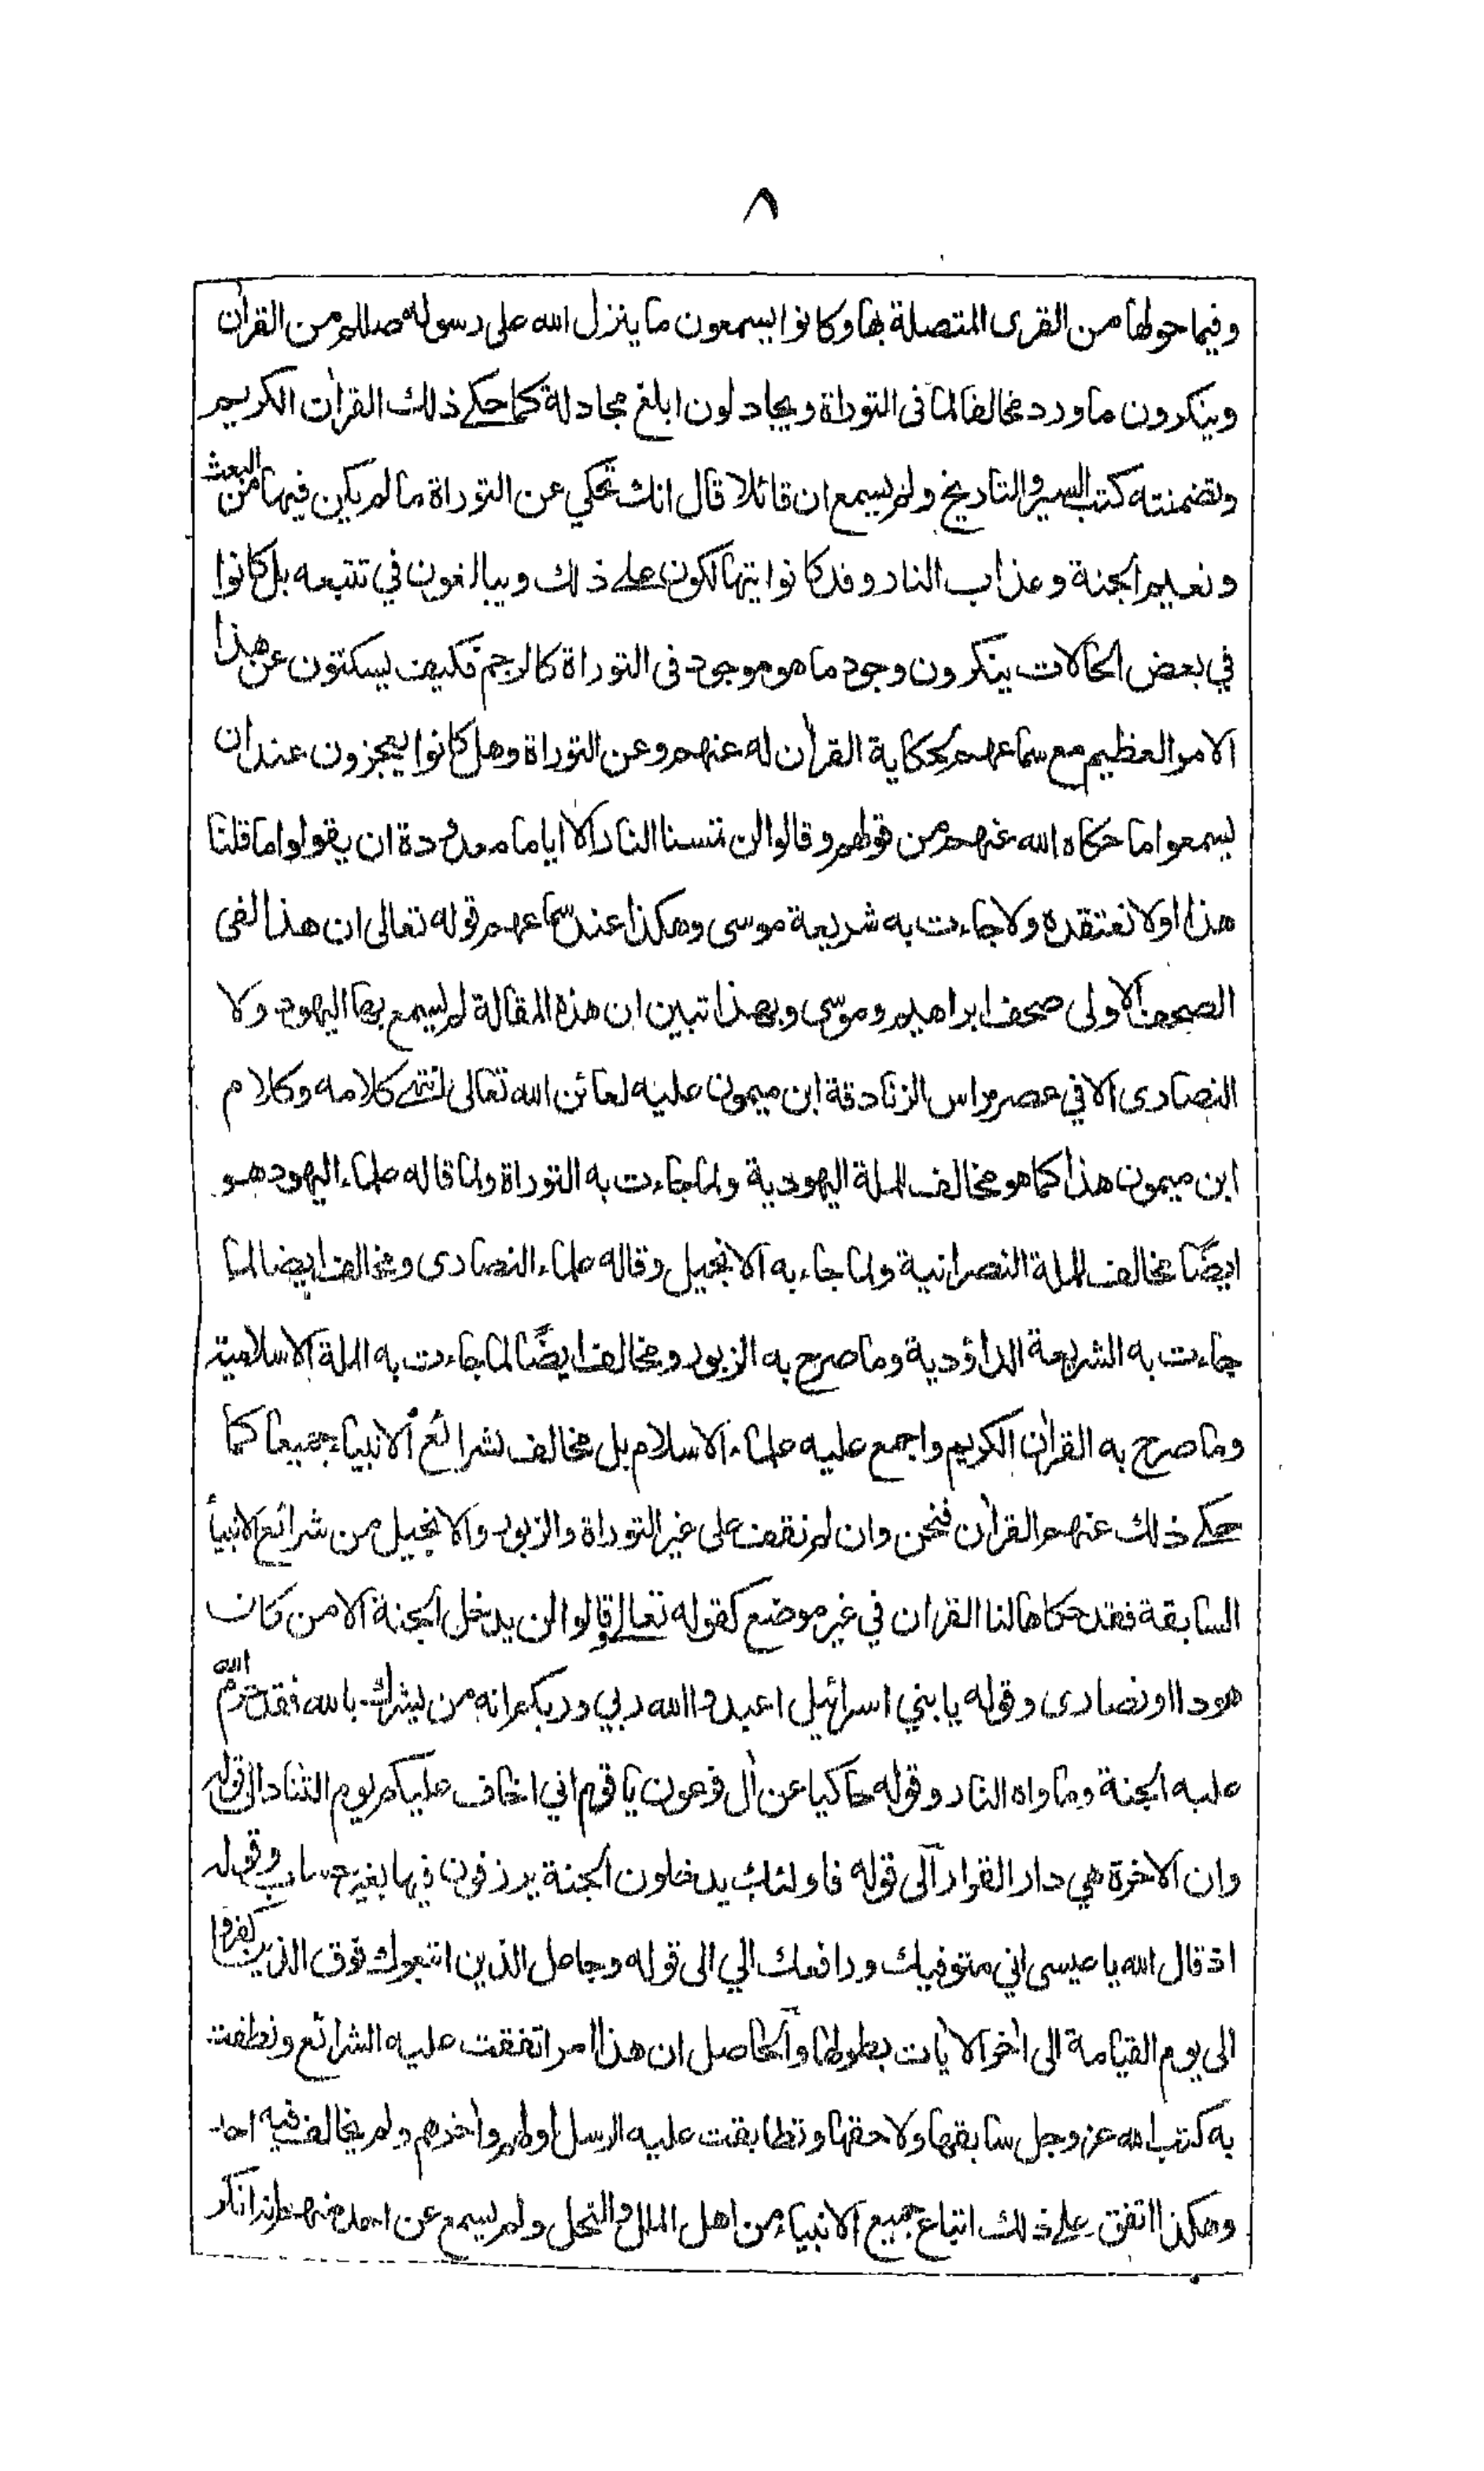 ٨
وفيما حولها من القرى المتصلة بها وكانوا يسمعون ما ينزل الله على رسوله صللم من القرآن
وينكرون ما ورد مخالفا لما فى التوراة ويجادلون ابلغ مجادلة كما حكى ذلك القرآن الكريم
وتضمنته كتب السير والتاريخ ولم يسمع ان قائلا قال انك تحكي عن التوراة ما لم يكن فيها من البعث
ونعيم الجنة وعذاب النار وقد كانوا يتهالكون على ذلك ويبالغون في تتبعه بل كانوا
في بعض الحالات ينكرون وجود ما هو موجود فى التوراة كالرجم فكيف يسكتون عن هذا
الامر العظيم مع سماعهم بحكاية القرآن له عنهم وعن التوراة وهل كانوا يعجزون عند ان
يسمعوا ما حكاه الله عنهم من قولهم وقالوا لن تمسنا النار الا اياما معدودة ان يقولوا ما قلنا
هذا اولا نعتقده ولا جاءت به شريعة موسى وهكذا عند سماعهم قوله تعالى ان هذا لفى
الصحف الاولى صحف ابراهيم وموسى وبهذا تبين ان هذه المقالة لم يسمع بها اليهود ولا
النصارى الا في عصر راس الزنادقة ابن ميمون عليه لعائن الله تعالى انتهى كلامه وكلام
ابن ميمون هذا كما هو مخالف للملة اليهودية ولما جاءت به التوراة ولما قاله علماء اليهود هو
ايضًا مخالف للملة النصرانية ولما جاء به الانجيل وقاله علماء النصارى ومخالف ايضا لما
جاءت به الشريعة الداؤدية وما صرح به الزبور ومخالف ايضًا لما جاءت به الملة الاسلامية
وما صرح به القرآن الكريم واجمع عليه علماء الاسلام بل مخالف لشرائع الانبياء جميعا كما
حكى ذلك عنهم القرآن فنحن وان لم نقف على غير التوراة والزبور والانجيل من شرائع الانبياء
السابقة فقد حكاها لنا القران في غير موضع كقوله تعالى وقالوا لن يدخل الجنة الا من كان
هودا او نصارى وقوله يا بني اسرائيل اعبدوا الله ربي وربكم انه من يشرك بالله فقد حرم الله
عليه الجنة وماواه النار وقوله حاكيا عن آل فرعون يا قوم اني اخاف عليكم يوم التناد الى قوله
وان الاخرة هي دار القرار الى قوله فاولئك يدخلون الجنة يرزقون فيها بغير حساب وقوله
اذ قال الله يا عيسى اني متوفيك ورافعك الي الى قوله وجاعل الذين اتبعوك فوق الذين كفروا
الى يوم القيامة الى آخر الآيات بطولها والحاصل ان هذا امر اتفقت عليه الشرائع ونطقت
به كتب الله عز وجل سابقها ولاحقها وتطابقت عليه الرسل اولهم وآخرهم ولم يخالف فيه احد
وهكذا اتفق على ذلك اتباع جميع الانبياء من اهل الملل والنحل ولم يسمع عن احد منهم انه انكر